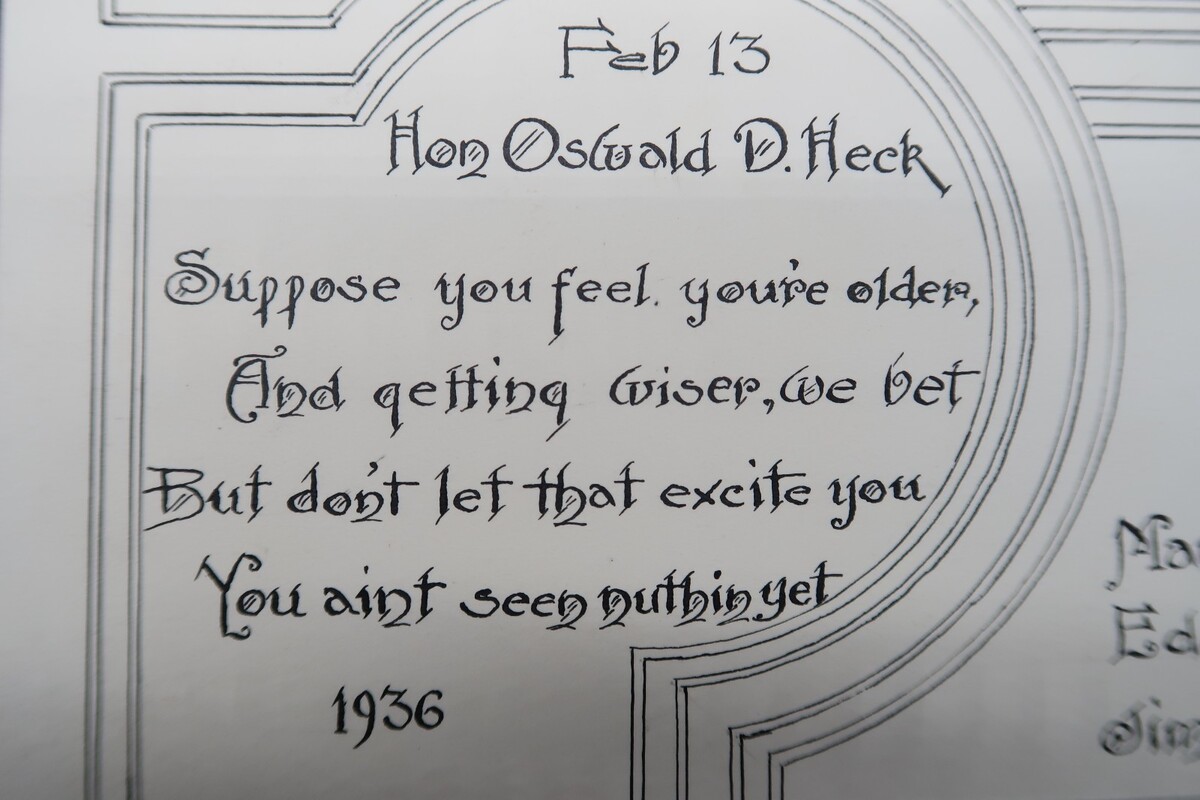 Feb 13
Hon Oswald D. Heck
Suppose you feel. you're older,
And getting wiser, we bet
But don't let that excite you
You aint seen nuthin yet
1936
Ma
Ed
Jim